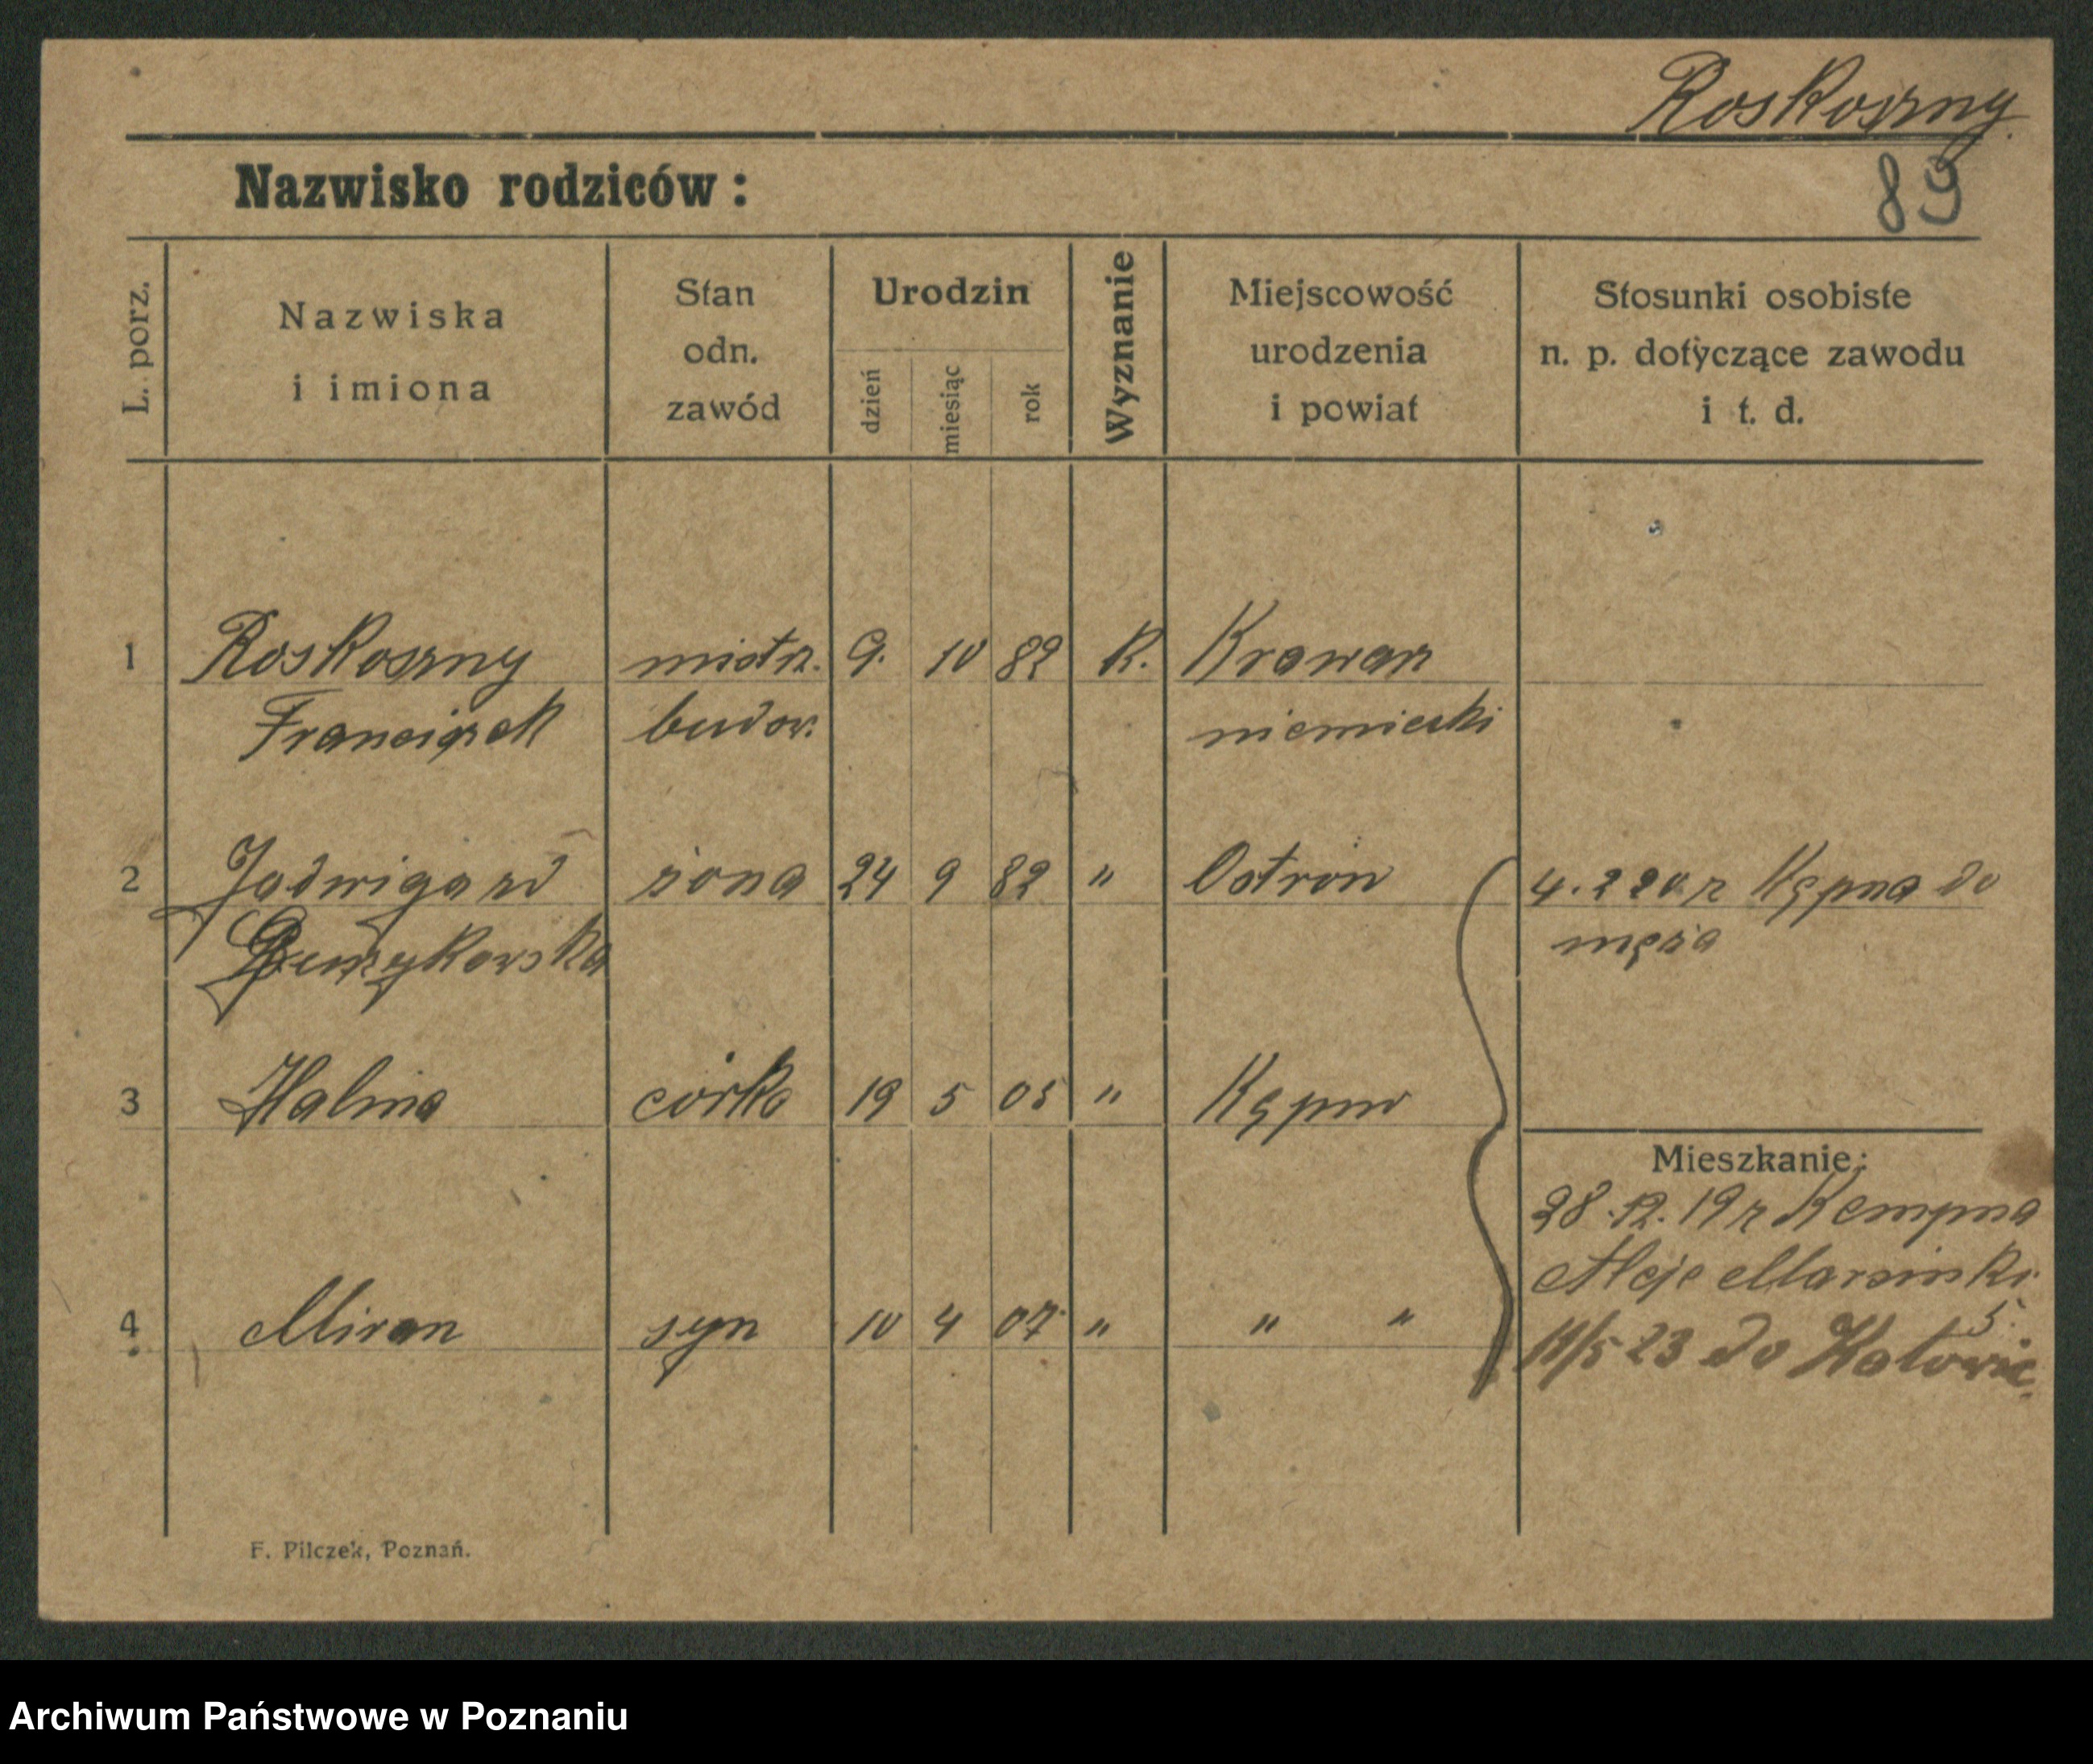 Roskoszny
Nazwisko rodziców:
89
L. porz.
Nazwiska
i imiona
Stan
odn.
zawód
Urodzin
dzień
miesiąc
rok
Wyznanie
Miejscowość
urodzenia
i powiat
Stosunki osobiste
n. p. dotyczące zawodu
i t. d.
1 Roskoszny mistrz. 9. 10 82 K. Krowarz
Franciszek budow. niemiecki
2 Jadwiga zd żona 24 9 82 " Ostrów 4.2 20 r Kępna do
męża
3 Halina córka 19 5 05 " Kępno
Mieszkanie:
28.12.19 r Kempna
Aleje Marcinki.
5.
4 Miron syn 10 4 07 " " "
11/5 23 do Katowic.
F. Pilczek, Poznań.
Archiwum Państwowe w Poznaniu